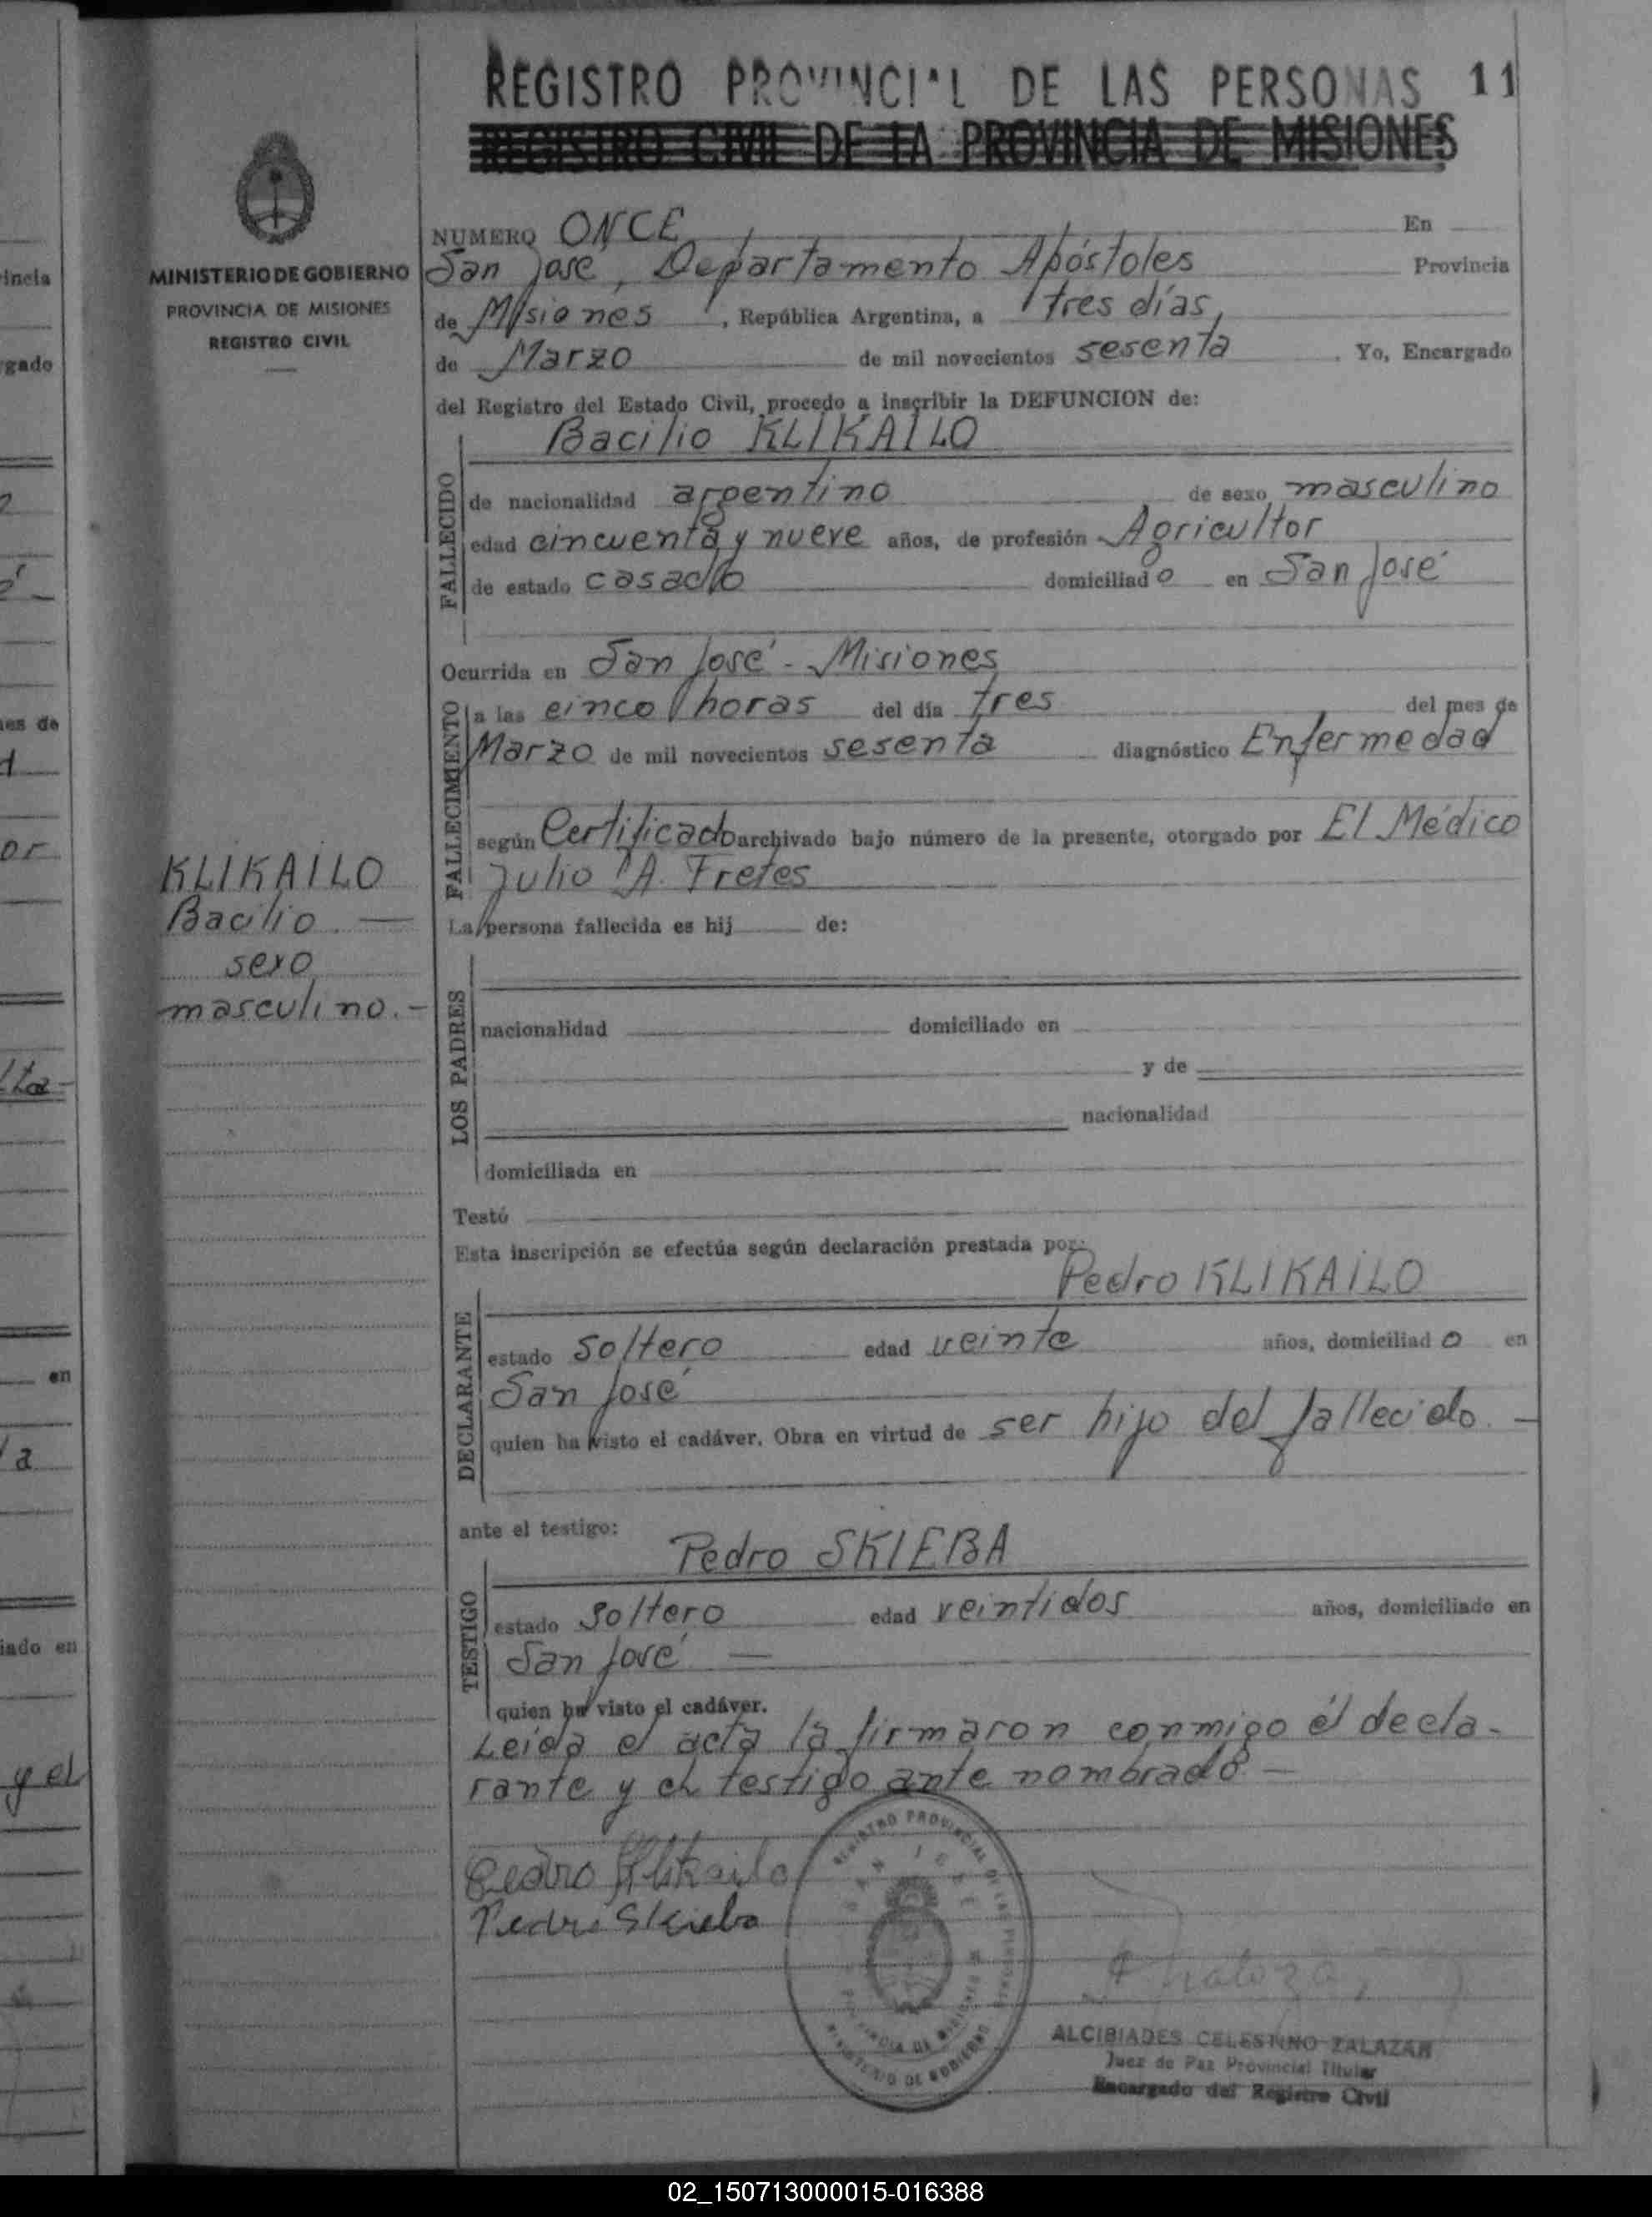 REGISTRO PROVINCIAL DE LAS PERSONAS 11
REGISTRO CIVIL DE LA PROVINCIA DE MISIONES
MINISTERIO DE GOBIERNO
PROVINCIA DE MISIONES
REGISTRO CIVIL
KLIKAILO
Bacilio. —
sexo
masculino.-
NUMERO ONCE En
San José, Departamento Apóstoles Provincia
de Misiones, República Argentina, a tres días,
de Marzo de mil novecientos sesenta. Yo, Encargado
del Registro del Estado Civil, procedo a inscribir la DEFUNCION de:
Bacilio KLIKAILO
FALLECIDO
de nacionalidad argentino de sexo masculino
edad cincuenta y nueve años, de profesión Agricultor
de estado casado domiciliado en San José
Ocurrida en San José - Misiones
FALLECIMIENTO
a las cinco horas del día tres del mes de
Marzo de mil novecientos sesenta diagnóstico Enfermedad
según Certificado archivado bajo número de la presente, otorgado por El Médico
Julio A. Fretes
La persona fallecida es hij de:
LOS PADRES
nacionalidad domiciliado en
y de
nacionalidad
domiciliada en
Testó
Esta inscripción se efectúa según declaración prestada por:
Pedro KLIKAILO
DECLARANTE
estado soltero edad veinte años, domiciliado en
San José
quien ha visto el cadáver. Obra en virtud de ser hijo del fallecido. —
ante el testigo:
Pedro SKIEBA
TESTIGO
estado soltero edad veintidos años, domiciliado en
San José —
quien ha visto el cadáver.
Leída el acta la firmaron conmigo él decla-
rante y el testigo ante nombrado —
Pedro Klikailo
Pedro Skieba
REGISTRO PROVINCIAL DE LAS PERSONAS
SAN JOSE
PROVINCIA DE MISIONES
MINISTERIO DE GOBIERNO
ALCIBIADES CELESTINO ZALAZAR
Juez de Paz Provincial Titular
Encargado del Registro Civil
02_150713000015-016388